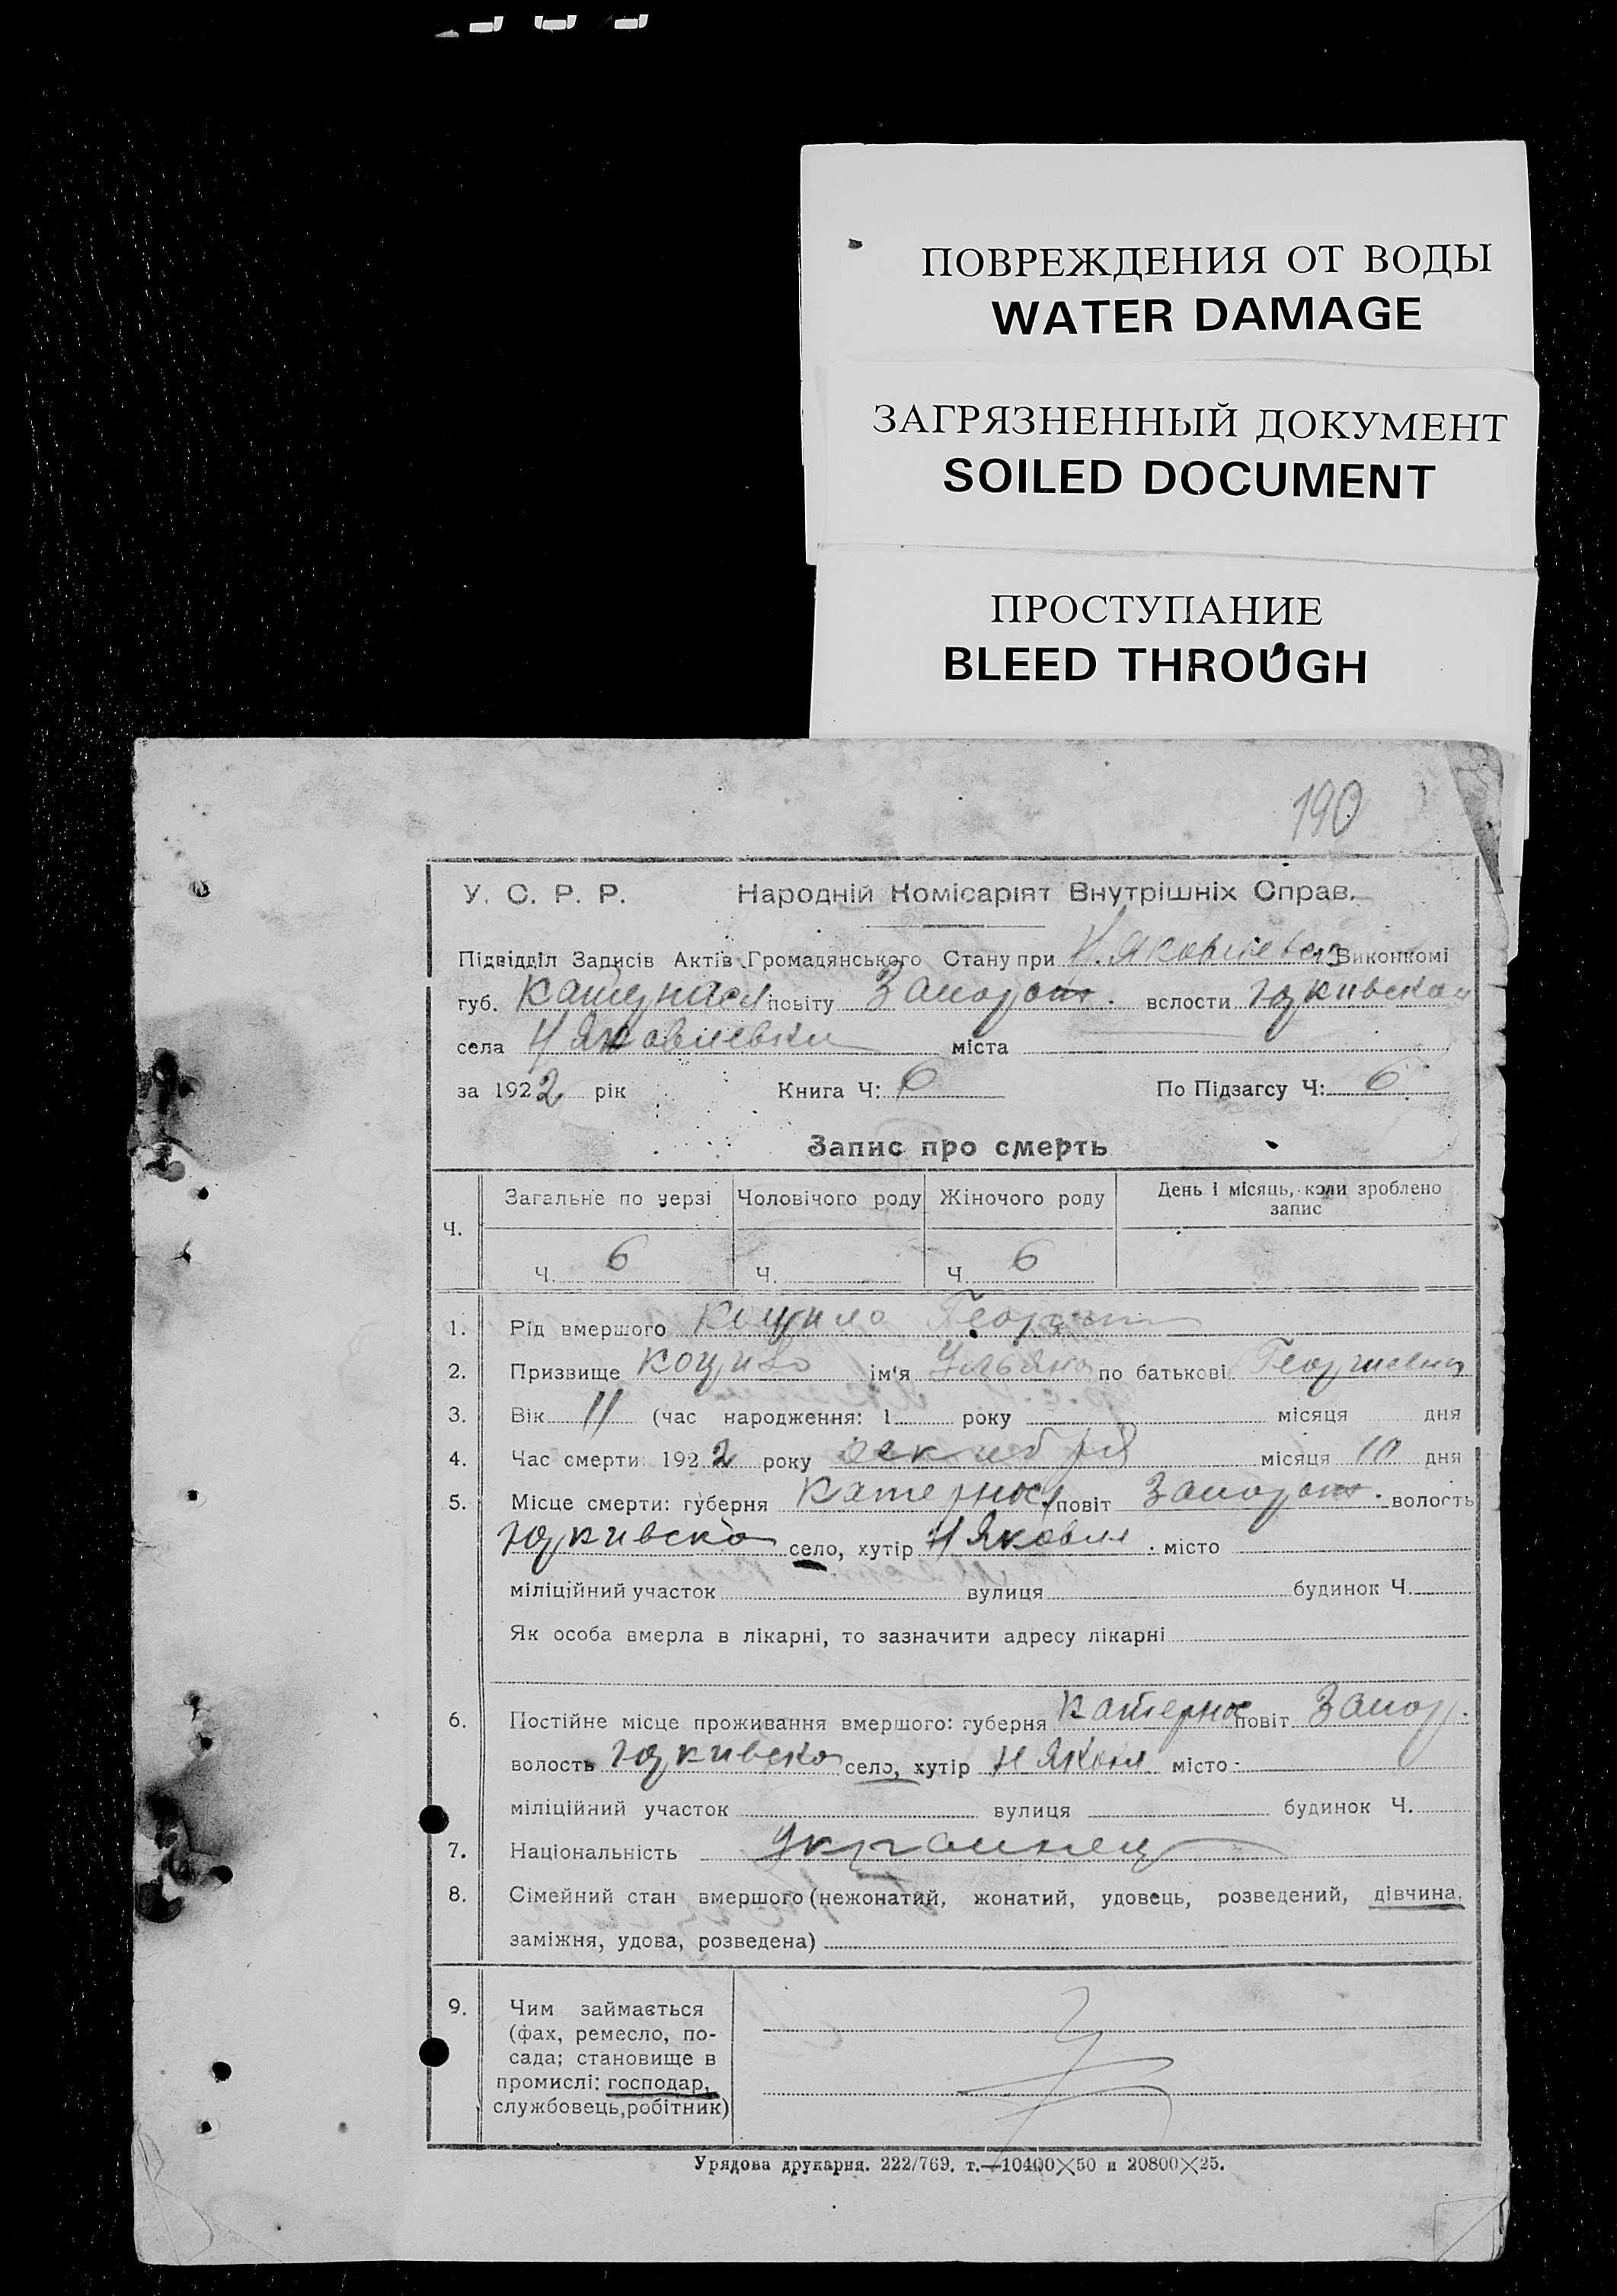 ПОВРЕЖДЕНИЯ ОТ ВОДЫ
WATER DAMAGE
ЗАГРЯЗНЕННЫЙ ДОКУМЕНТ
SOILED DOCUMENT
ПРОСТУПАНИЕ
BLEED THROUGH
190
У. С. Р. Р. Народній Комісаріят Внутрішніх Справ.
Підвідділ Записів Актів Громадянського Стану при Виконкомі
губ. повіту Запорож. волости
села Н Яковлевки міста
за 1922 рік Книга Ч: 6 По Підзагсу Ч: 6
Запис про смерть
Ч. Загальне по черзі Чоловічого роду Жіночого роду День і місяць, коли зроблено запис
Ч. 6 Ч. Ч. 6
1. Рід вмершого Георгий
2. Призвище ім'я Ульяна по батькові Георгиевна
3. Вік 11 (час народження: 1 року місяця дня
4. Час смерти: 1922 року декабря місяця 10 дня
5. Місце смерти: губерня Катернос повіт Запорож. волость
село, хутір Н Яковл. місто
міліційний участок вулиця будинок Ч.
Як особа вмерла в лікарні, то зазначити адресу лікарні
6. Постійне місце проживання вмершого: губерня Катернос повіт Запор.
волость село, хутір місто
міліційний участок вулиця будинок Ч.
7. Національність Украинец
8. Сімейний стан вмершого (нежонатий, жонатий, удовець, розведений, дівчина,
заміжня, удова, розведена)
9. Чим займається
(фах, ремесло, по-
сада; становище в
промислі: господар,
службовець, робітник)
Урядова друкарня. 222/769. т.—10400×50 и 20800×25.